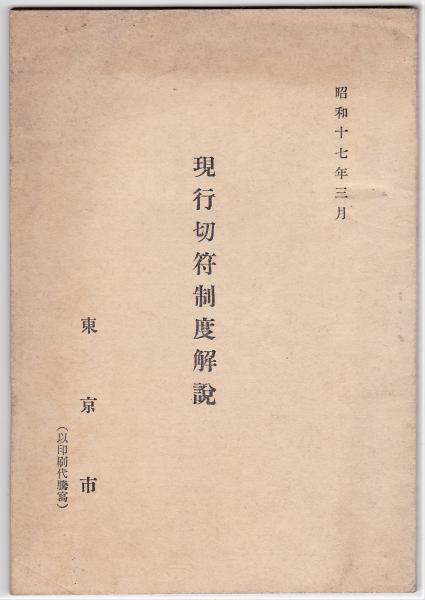 昭和十七年三月
現行切符制度解說
東京市
（以印刷代謄寫）